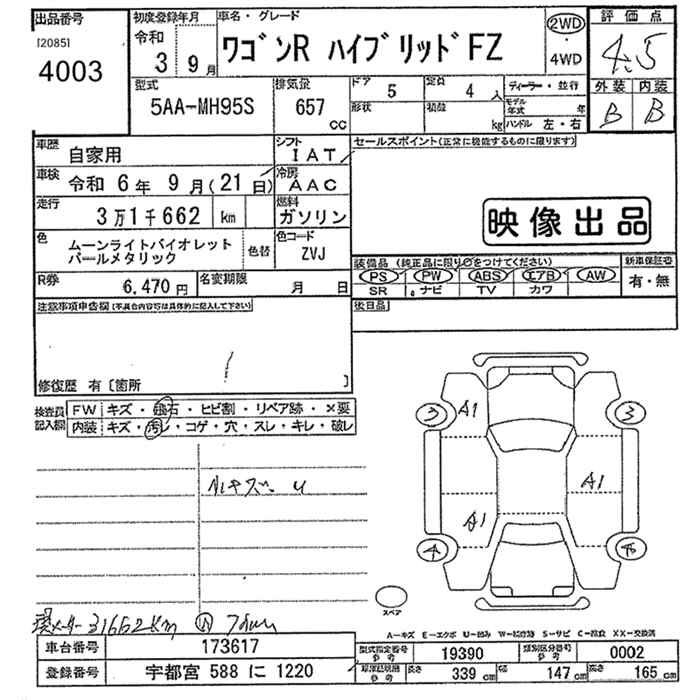 出品番号
[2085]
4003
初度登録年月
令和
3 9月
車名・グレード
ワゴンR ハイブリッドFZ
2WD
・
4WD
評価点
4.5
外装 内装
B B
型式
5AA-MH95S
排気量
657
cc
ドア 5
定員 4 人
形状
積載 kg
ディーラー・並行
モデル年式 年
ハンドル 左・右
車歴
自家用
シフト
IAT
車検
令和 6年 9月(21日)
冷房
AAC
走行
3万1千662 km
燃料
ガソリン
色
ムーンライトバイオレット
パールメタリック
色替
色コード
ZVJ
R券
6,470円
名変期限
月 日
セールスポイント(正常に機能するものに限ります)
映像出品
装備品(純正品に限り○をつけてください)
PS PW ABS エアB AW
SR ナビ TV カワ
新車保証書
有・無
後日品
注意事項申告欄(不具合内容等は具体的に記入して下さい)
修復歴 有〔箇所 〕
検査員
記入欄
FW キズ・飛石・ヒビ割・リペア跡・×要
内装 キズ・汚レ・コゲ・穴・スレ・キレ・破レ
小キズ、U
現メーター31662Km
A1
A1
A1
3
3
スペア
A-キズ E-エクボ U-凹み W-補修跡 S-サビ C-腐食 XX-交換済
車台番号
173617
登録番号
宇都宮 588 に 1220
型式指定番号
参考
19390
類別区分番号
参考
0002
長さ
339 cm
幅
147 cm
高さ
165 cm